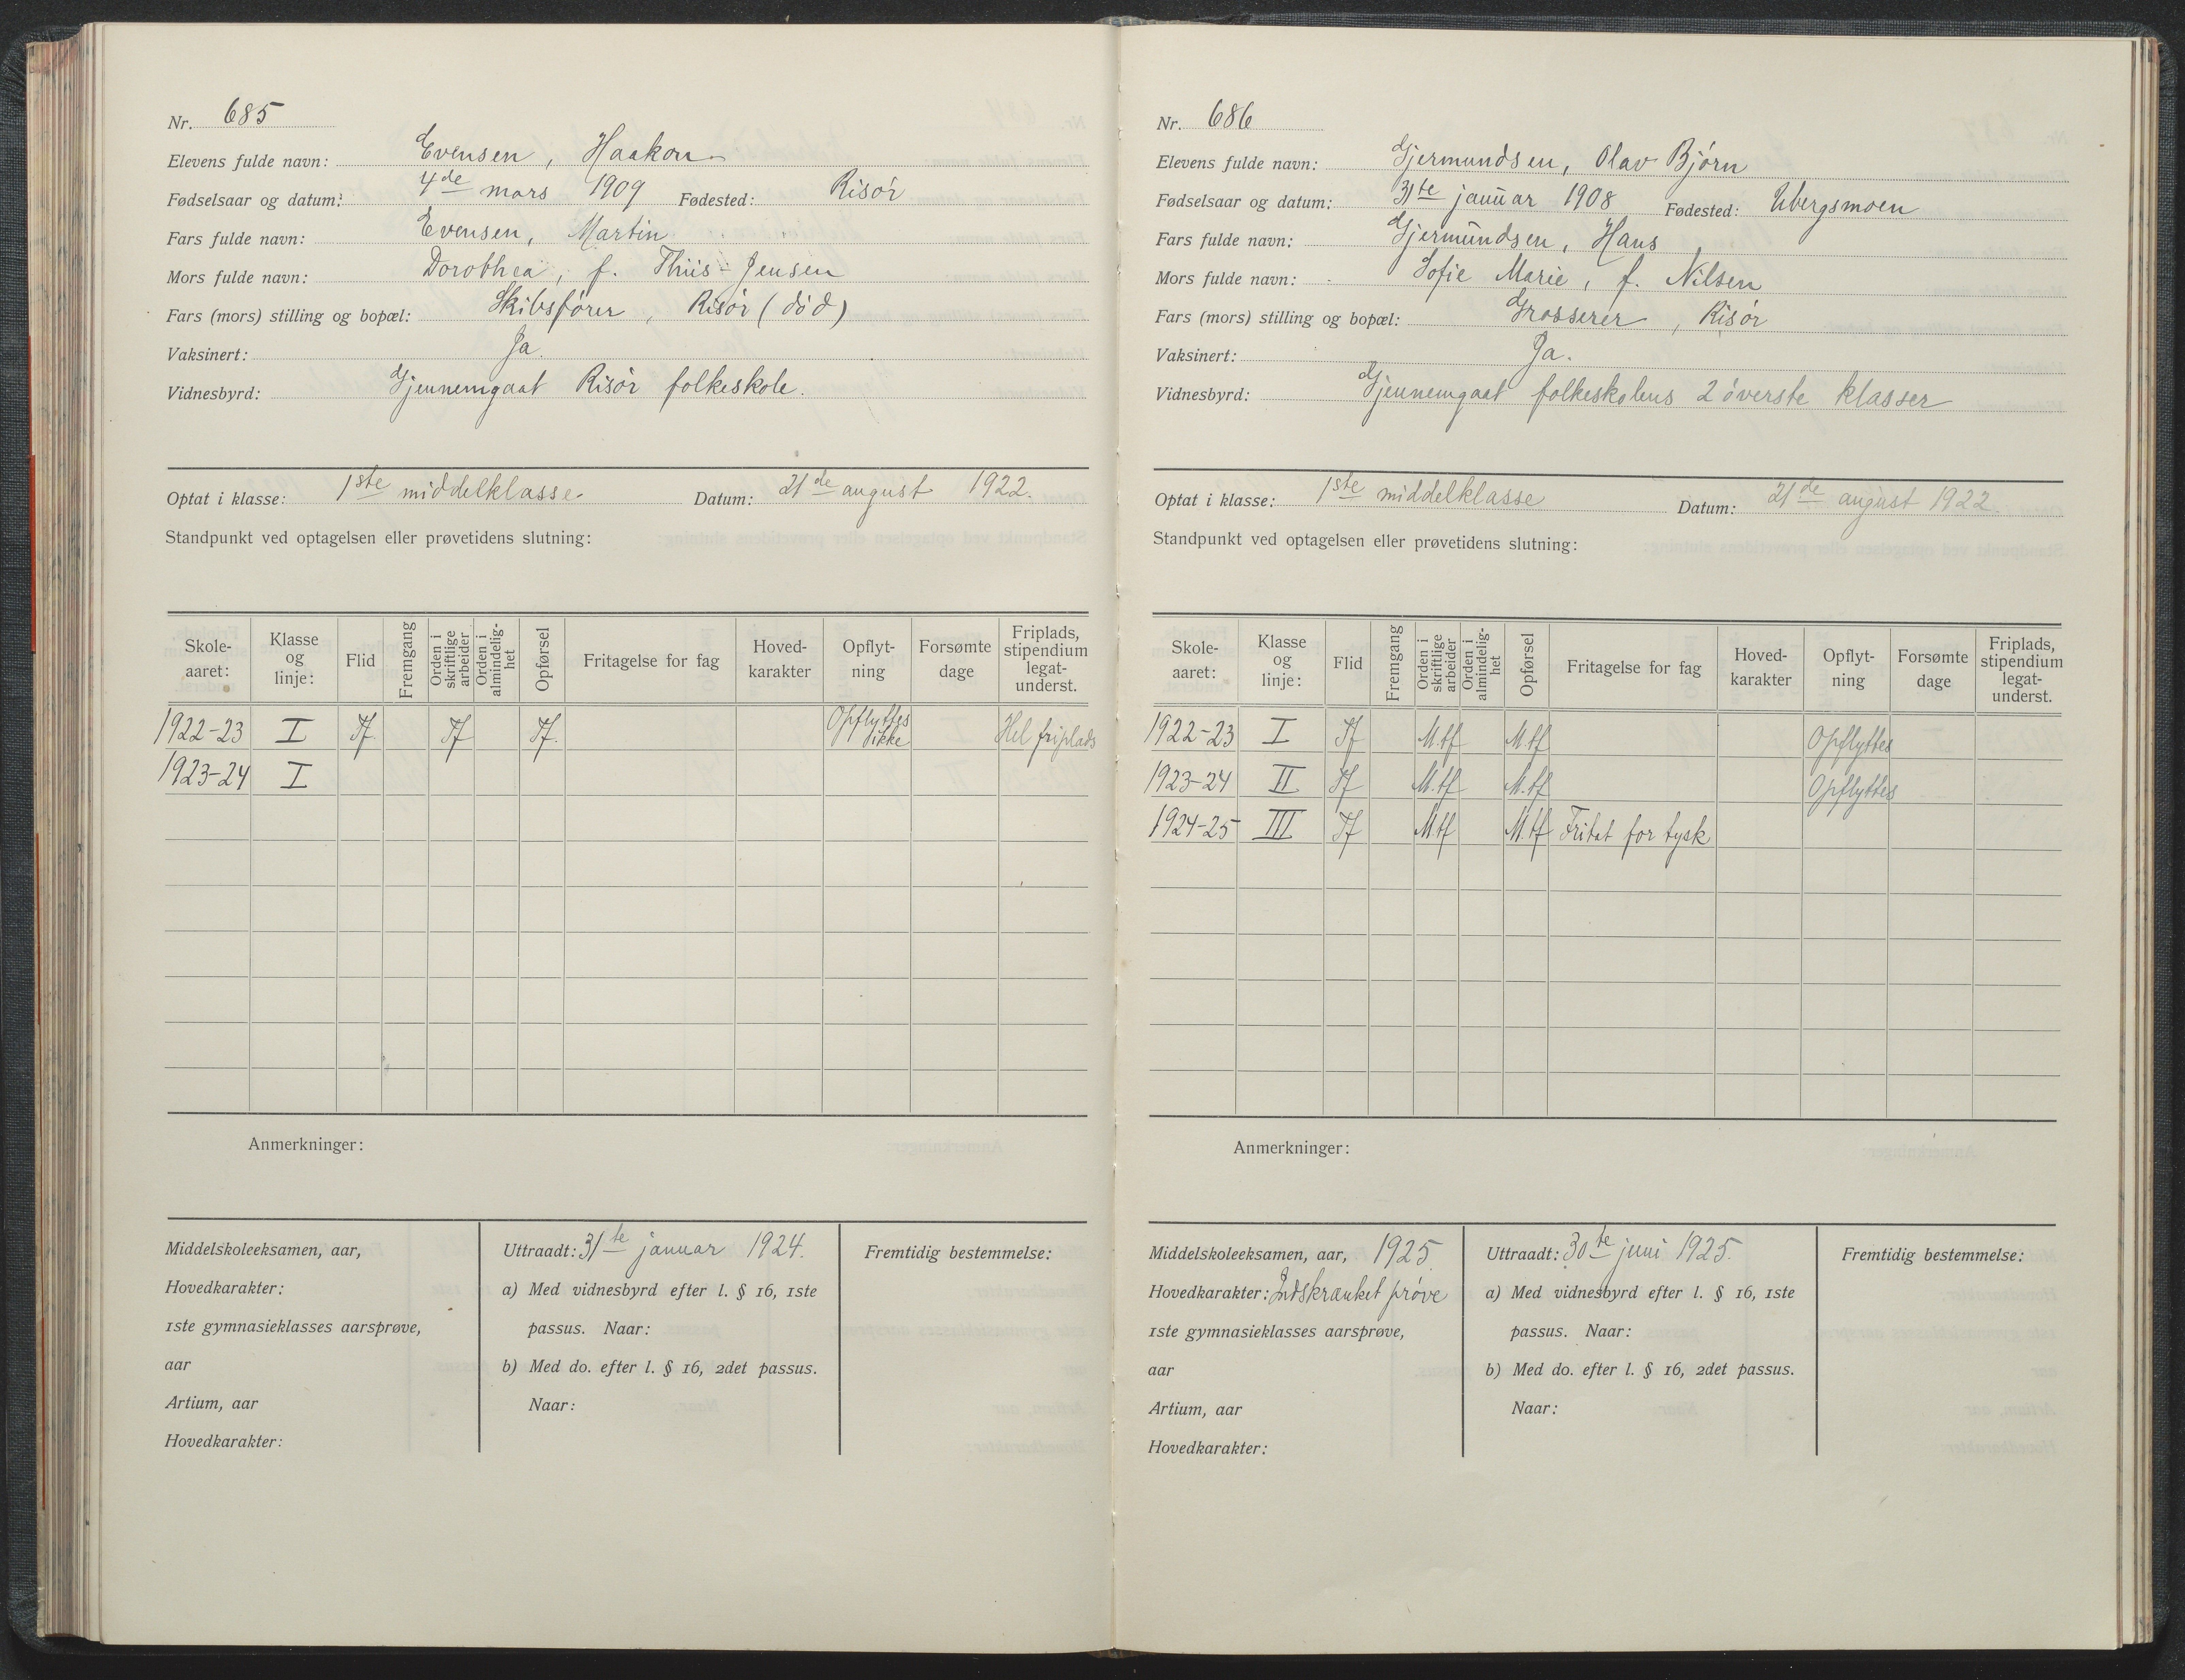 Nr. 685
Elevens fulde navn: Evensen, Haakon
Fødselsaar og datum: 4de mars 1909 Fødested: Risör
Fars fulde navn: Evensen, Martin
Mors fulde navn: Dorothea, f. Thiis-Jensen
Fars (mors) stilling og bopæl: Skibsfører, Risör (död)
Vaksinert: Ja.
Vidnesbyrd: Gjennemgaat Risör folkeskole.
Optat i klasse: 1ste middelklasse Datum: 21de august 1922.
Standpunkt ved optagelsen eller prøvetidens slutning:
Skole-aaret: Klasse og linje: Flid Fremgang Orden i skriftlige arbeider Orden i almindelig-het Opførsel Fritagelse for fag Hoved-karakter Opflyt-ning Forsømte dage Friplads, stipendium legat-underst.
1922-23 I Tf. Tf Tf. Opflyttes ikke Hel friplads
1923-24 I
Anmerkninger:
Middelskoleeksamen, aar,
Hovedkarakter:
1ste gymnasieklasses aarsprøve,
aar
Artium, aar
Hovedkarakter:
Uttraadt: 31te januar 1924.
a) Med vidnesbyrd efter l. § 16, 1ste
passus. Naar:
b) Med do. efter l. § 16, 2det passus.
Naar:
Fremtidig bestemmelse:
Nr. 686
Elevens fulde navn: Gjermundsen, Olav Bjørn
Fødselsaar og datum: 31te januar 1908 Fødested: Ubergsmoen
Fars fulde navn: Gjermundsen, Hans
Mors fulde navn: Sofie Marie, f. Nilsen
Fars (mors) stilling og bopæl: Grosserer, Risör
Vaksinert: Ja.
Vidnesbyrd: Gjennemgaat folkeskolens 2 överste klasser
Optat i klasse: 1ste middelklasse Datum: 21de august 1922.
Standpunkt ved optagelsen eller prøvetidens slutning:
Skole-aaret: Klasse og linje: Flid Fremgang Orden i skriftlige arbeider Orden i almindelig-het Opførsel Fritagelse for fag Hoved-karakter Opflyt-ning Forsømte dage Friplads, stipendium legat-underst.
1922-23 I Tf M.tf M.tf Opflyttes
1923-24 II Tf M.tf M.tf Opflyttes
1924-25 III Tf M.tf M.tf Fritat for tysk
Anmerkninger:
Middelskoleeksamen, aar, 1925.
Hovedkarakter: Indskrænket prøve
1ste gymnasieklasses aarsprøve,
aar
Artium, aar
Hovedkarakter:
Uttraadt: 30te juni 1925.
a) Med vidnesbyrd efter l. § 16, 1ste
passus. Naar:
b) Med do. efter l. § 16, 2det passus.
Naar:
Fremtidig bestemmelse: